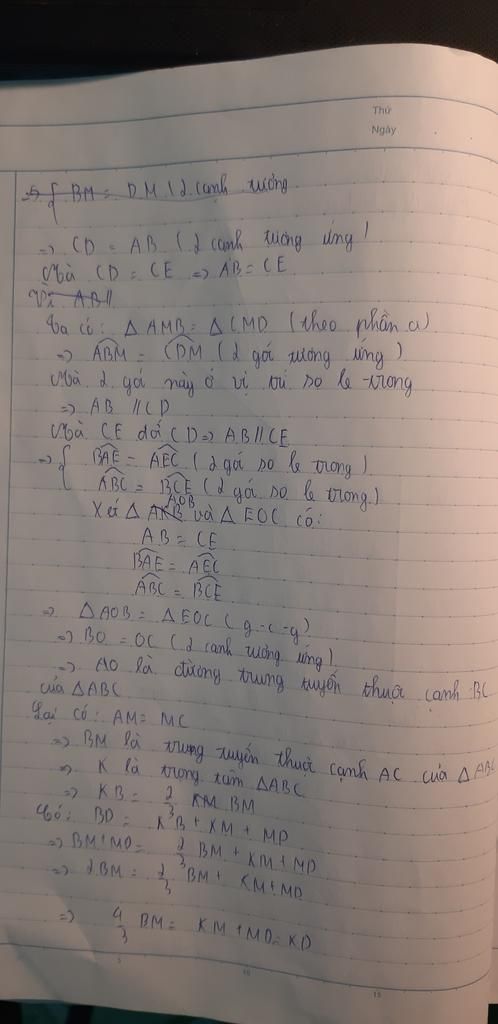 Thứ
Ngày
=> { BM = DM (2 cạnh tương
=> CD = AB (2 cạnh tương ứng)
Mà CD = CE => AB = CE
Vì AB //
Ta có: △ AMB = △ CMD (theo phần a)
=> ABM = CDM (2 gó tương ứng)
Mà 2 gó này ở vị trí so le trong
=> AB // CD
Mà CE đối CD => AB // CE
=> { BAE = AEC (2 gó so le trong)
ABC = BCE (2 gó so le trong)
Xét △ AKB AOB và △ EOC có:
AB = CE
BAE = AEC
ABC = BCE
=> △ AOB = △ EOC (g-c-g)
=> BO = OC (2 cạnh tương ứng)
=> AO là đường trung tuyến thuộc cạnh BC
của △ABC
Lại có: AM = MC
=> BM là trung tuyến thuộc cạnh AC của △ ABC
=> K là trọng tâm △ABC
=> KB = 2/3 KM BM
Có: BD = KB + KM + MD
=> BM + MD = 2/3 BM + KM + MD
=> 2BM = 2/3 BM + KM + MD
=> 4/3 BM = KM + MD = KD
5 10 15